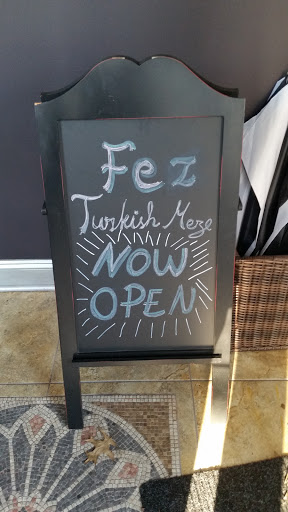 Fez
Turkish Meze
NOW
OPEN